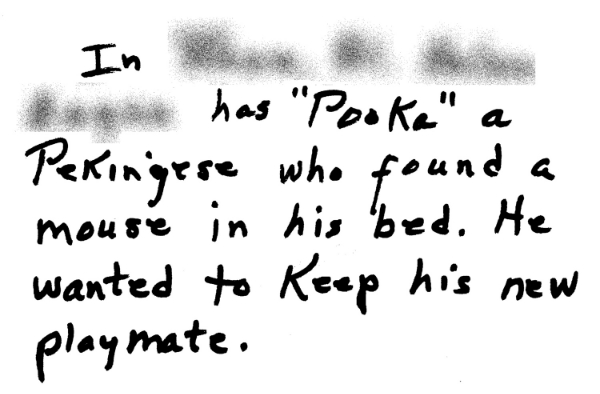 In
has "Pooka" a
Pekingese who found a
mouse in his bed. He
wanted to Keep his new
playmate.